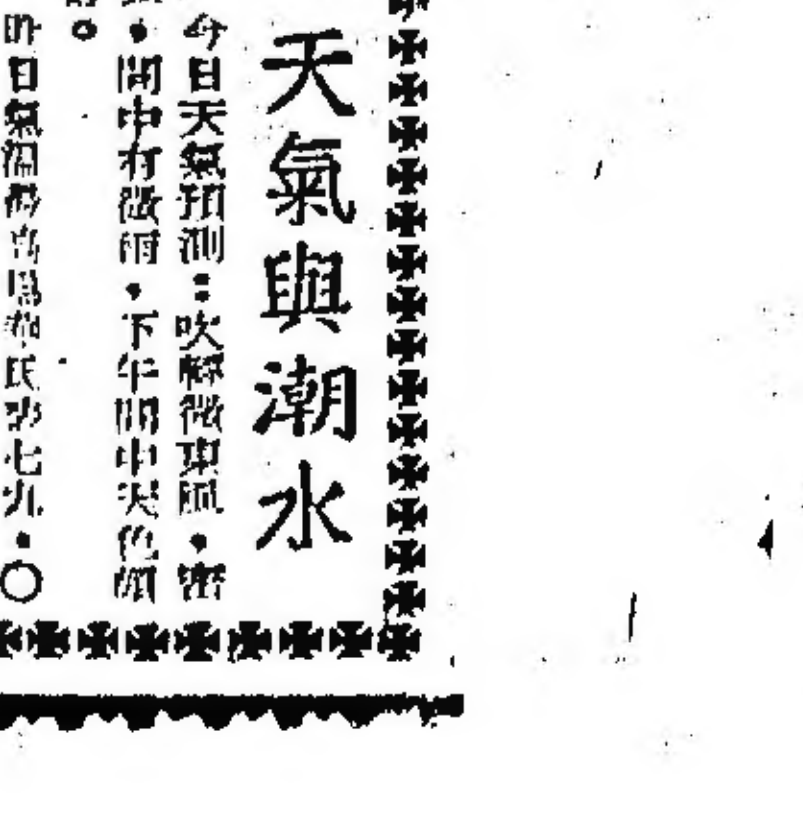 天氣與潮水
今日天氣預測：吹輕微東風，密
，間中有微雨，下午間中天色頗
。
昨日氣溫最高為華氏表七九・〇